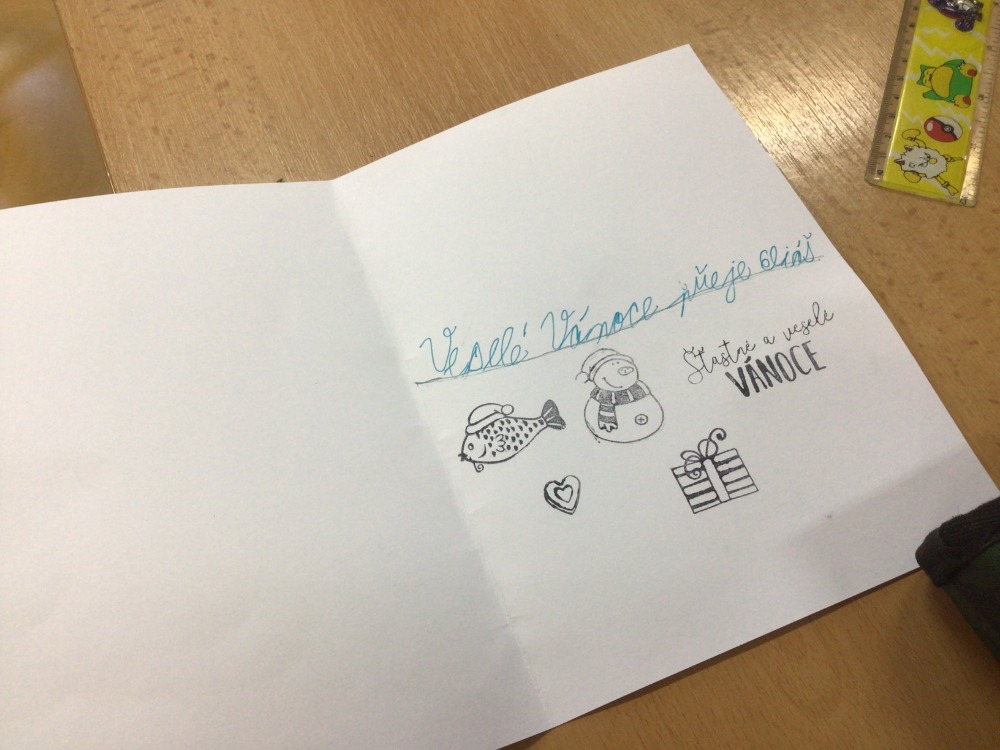 Veselé Vánoce přeje Eliáš
Šťastné a veselé
VÁNOCE